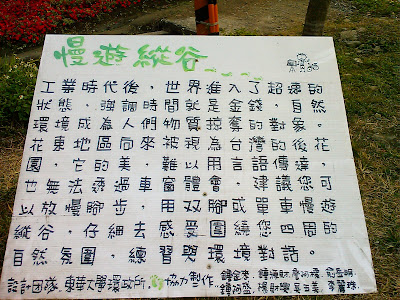 慢遊縱谷
工業時代後，世界進入了超速的
狀態，強調時間就是金錢，自然
環境成為人們物質掠奪的對象。
花東地區向來被視為台灣的後花
園，它的美，難以用言語傳達，
也無法透過車窗體會，建議您可
以放慢腳步，用双腳或單車慢遊
縱谷，仔細去感受圍繞您四周的
自然氛圍，練習與環境對話。
設計團隊 東華大學環政所 協力製作